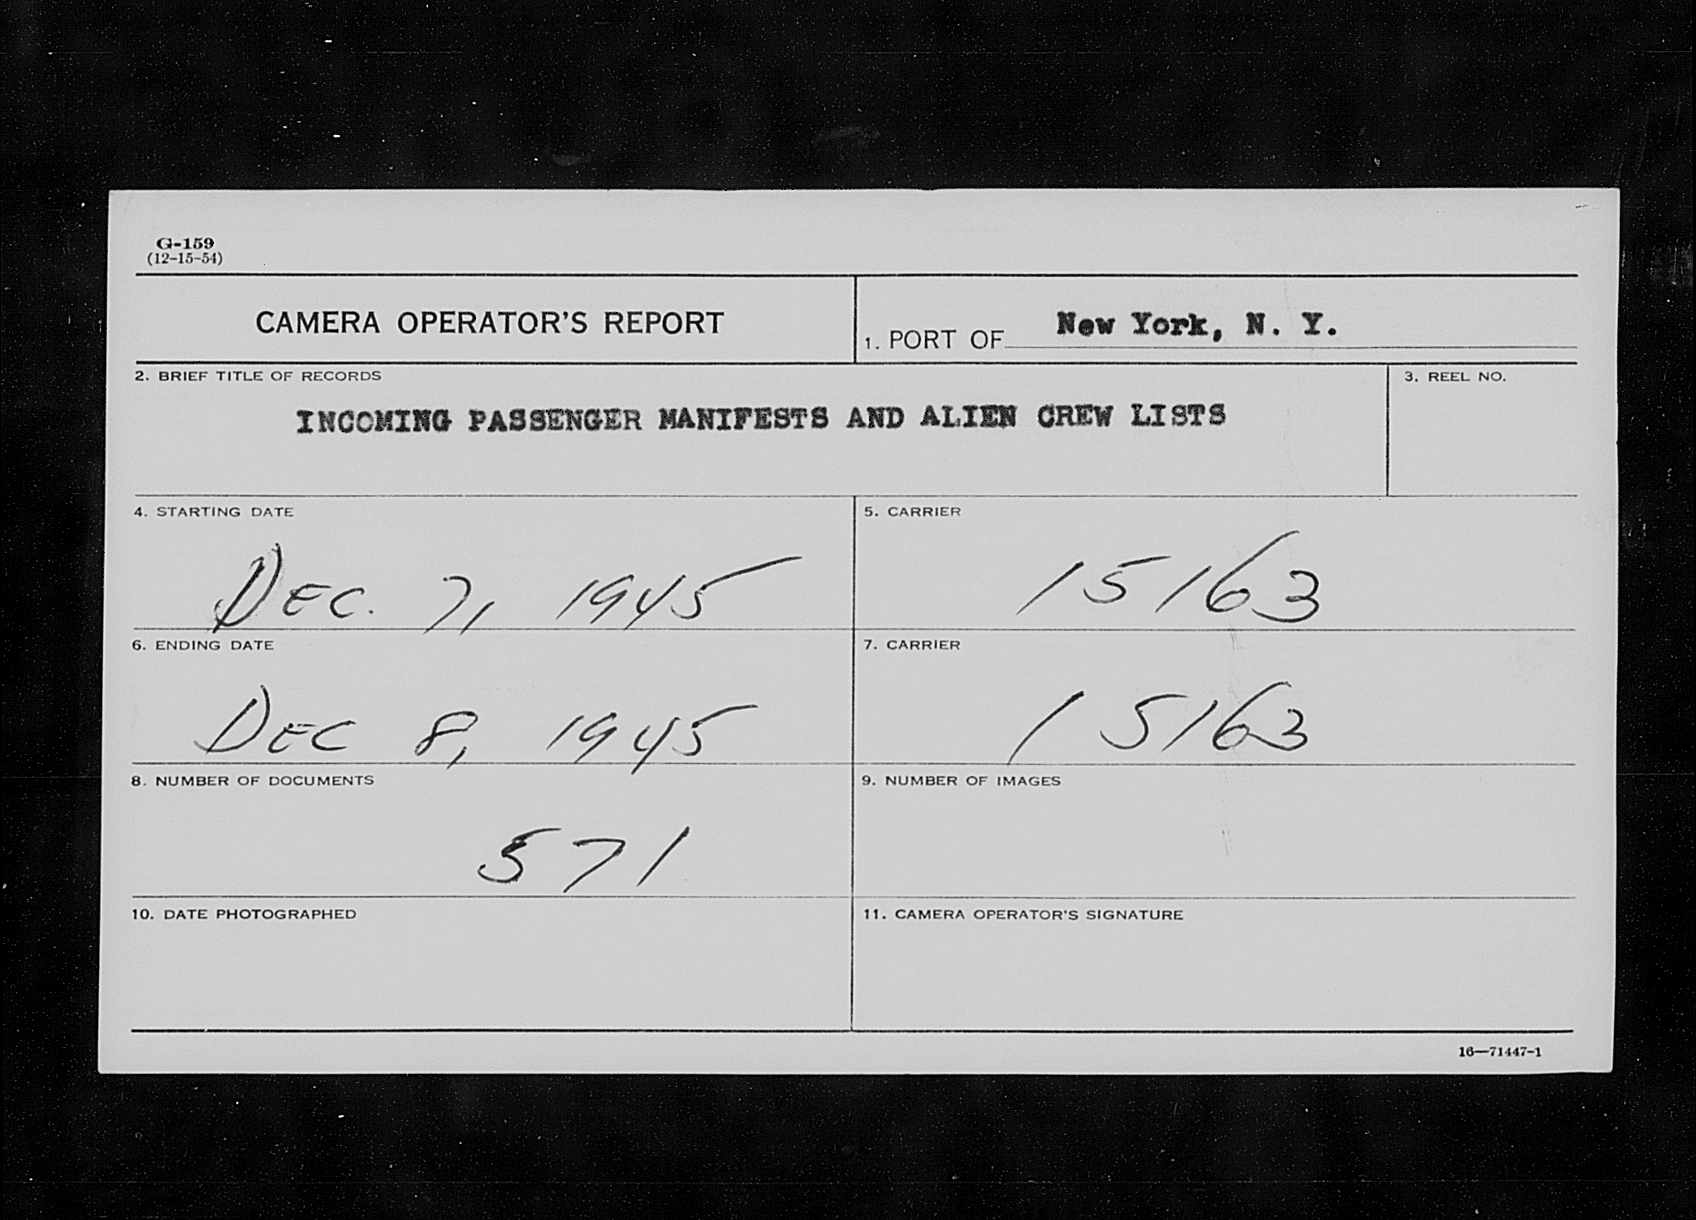 G-159
(12-15-54)
CAMERA OPERATOR'S REPORT
1. PORT OF New York, N. Y.
2. BRIEF TITLE OF RECORDS
INCOMING PASSENGER MANIFESTS AND ALIEN CREW LISTS
3. REEL NO.
4. STARTING DATE
DEC. 7, 1945
5. CARRIER
15163
6. ENDING DATE
DEC 8, 1945
7. CARRIER
15163
8. NUMBER OF DOCUMENTS
571
9. NUMBER OF IMAGES
10. DATE PHOTOGRAPHED
11. CAMERA OPERATOR'S SIGNATURE
16—71447-1